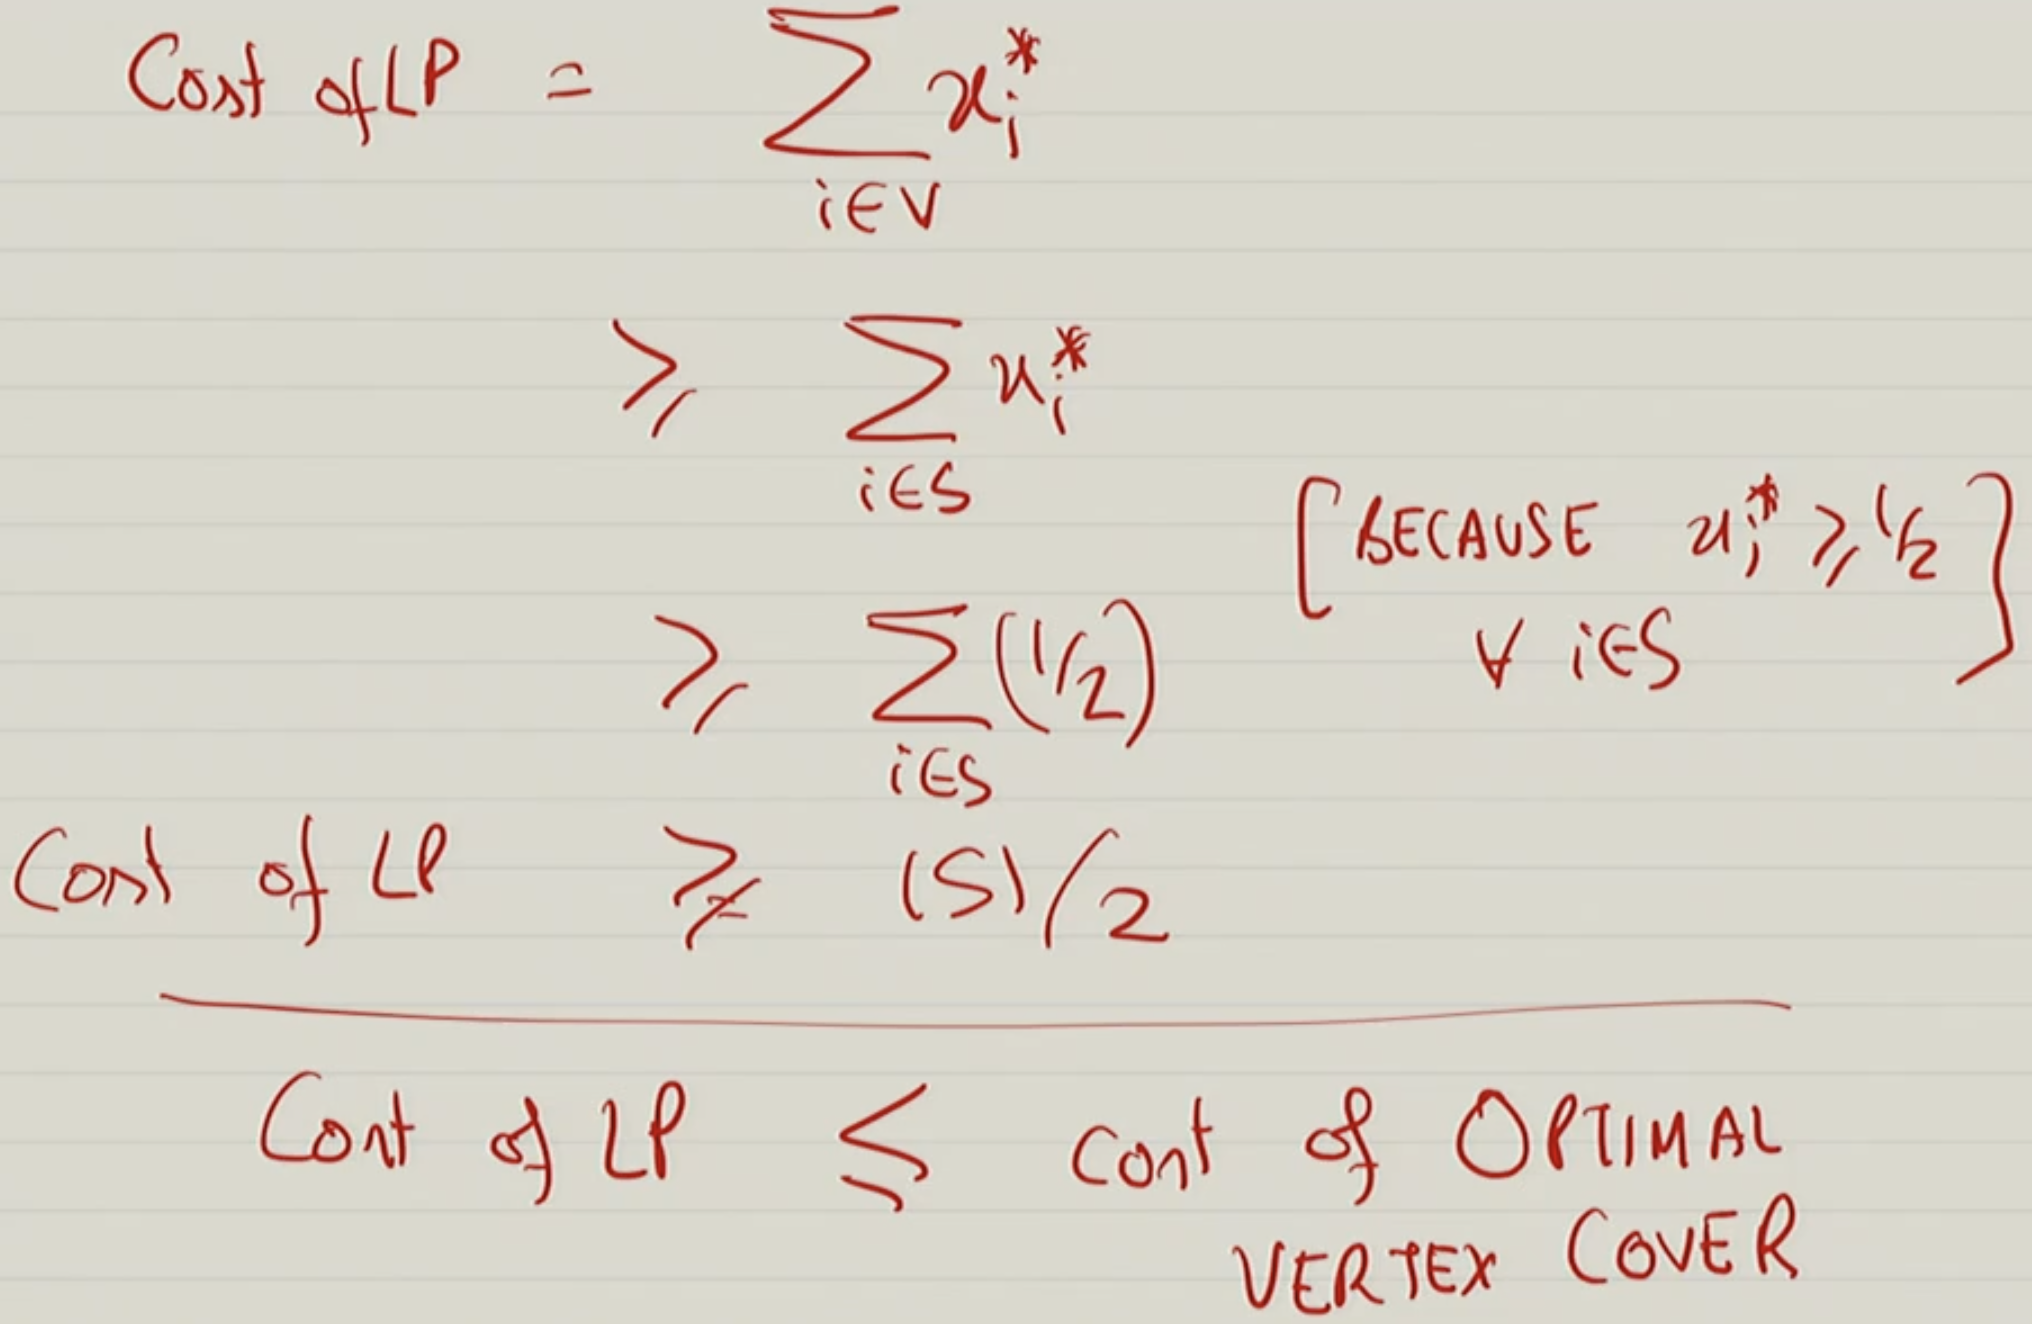 Cost of LP = ∑ x_i^*
i∈V
≥ ∑ x_i^*
i∈S
[BECAUSE x_i^* ≥ 1/2
∀ i∈S]
≥ ∑ (1/2)
i∈S
Cost of LP ≥ |S|/2
Cost of LP ≤ cost of OPTIMAL
VERTEX COVER